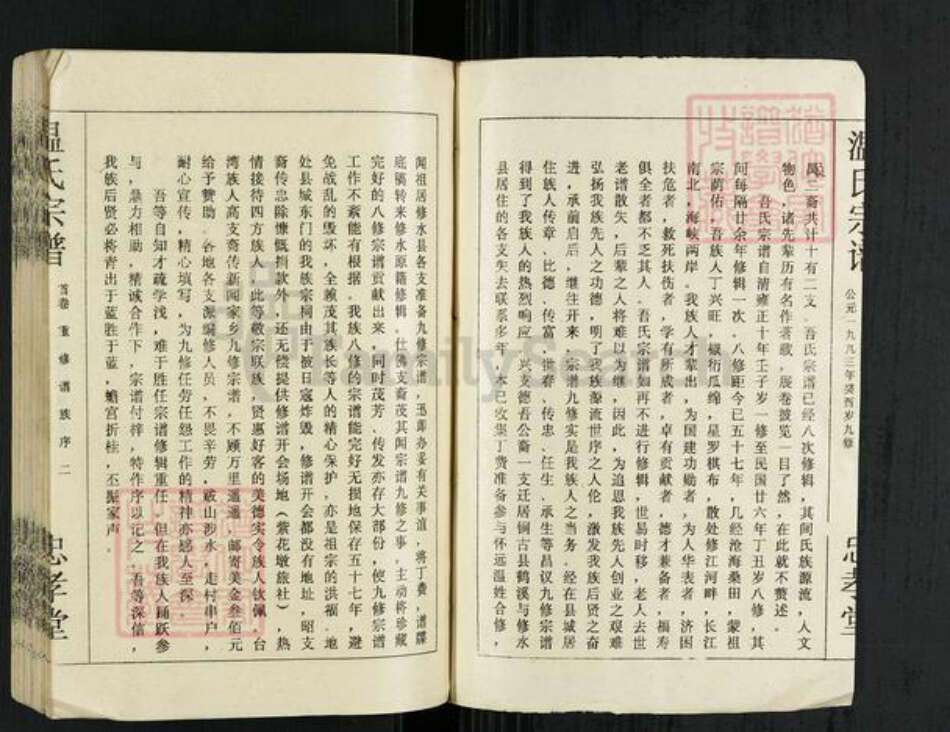 温氏宗谱
公元一九九三年癸酉岁九修
忠孝堂
公三裔共计十有二支．吾氏宗谱已经八次修辑，其间氏族源流，人文
物色，诸先辈历有名作著载，展卷披览一目了然，在此就不赘述．
吾氏宗谱自清雍正十年壬子岁一修至民国廿六年丁丑岁八修，其
间每隔廿余年修辑一次．八修距今已五十七年，几经沧海桑田，蒙祖
宗荫佑，吾族人丁兴旺，椒衍瓜绵，星罗棋布，散处修江河畔，长江
南北，海峡两岸．我族人才辈出，为国建功勋者，为人华表者，济困
扶危者，救死扶伤者，学有所成者，卓有贡献者，德才兼备者，福寿
俱全者都不乏其人．吾氏宗谱如再不进行修辑，世易时移，老人去世
老谱散失，后辈之人将难以为继，因此，为追思我族先人创业之艰难
弘扬我族先人之功德，明了我族源流世序之人伦，激发我族后贤之奋
进，承前启后，继往开来，宗谱九修实是我族人之当务．经在县城居
住族人传章、比德、传富、世春、传忠、任生、承生等昌议九修宗谱
得到了我族人的热烈响应，兴支德吾公裔一支迁居铜古县鹤溪与修水
县居住的各支失去联系多年，本已收集丁费准备参与怀远温姓合修，
闻祖居修水县各支准备九修宗谱，迅即办妥有关事谊，将丁费，谱牒
底稿转来修水原籍修辑．仕佛支裔茂其闻宗谱九修之事，主动将珍藏
完好的八修宗谱贡献出来，同时茂芳、传发亦存大部份，使九修宗谱
工作不紊能有根据．我族八修的宗谱能完好无损地保存五十七年，避
免战乱的毁坏，全赖茂其族长等人的精心保护，亦是祖宗的洪福．地
处县城东门的我族宗祠由于被日寇炸毁，修谱开会都没有地址，昭支
裔传忠除慷慨捐款外，还无偿提供修谱开会场地（紫花墩旅社），热
情接待四方族人，此等敬宗联族，贤惠好客的美德实令族人钦佩．台
湾族人高支裔传新闻家乡九修宗谱，不顾万里遥遥，邮寄美金叁佰元
给予赞助．各地各支派编修人员，不畏辛劳，跋山涉水，走村串户，
耐心宣传，精心填写，为九修任劳任怨工作的精神亦感人至深．
吾等自知才疏学浅，难于胜任宗谱修辑重任，但在我族人踊跃参
与，鼎力相助，精诚合作下，宗谱付梓，特作序以记之．吾等深信，
我族后贤必将青出于蓝胜于蓝，蟾宫折桂，丕振家声．
温氏宗谱
首卷 重修谱族序 二
忠孝堂
FamilySearch